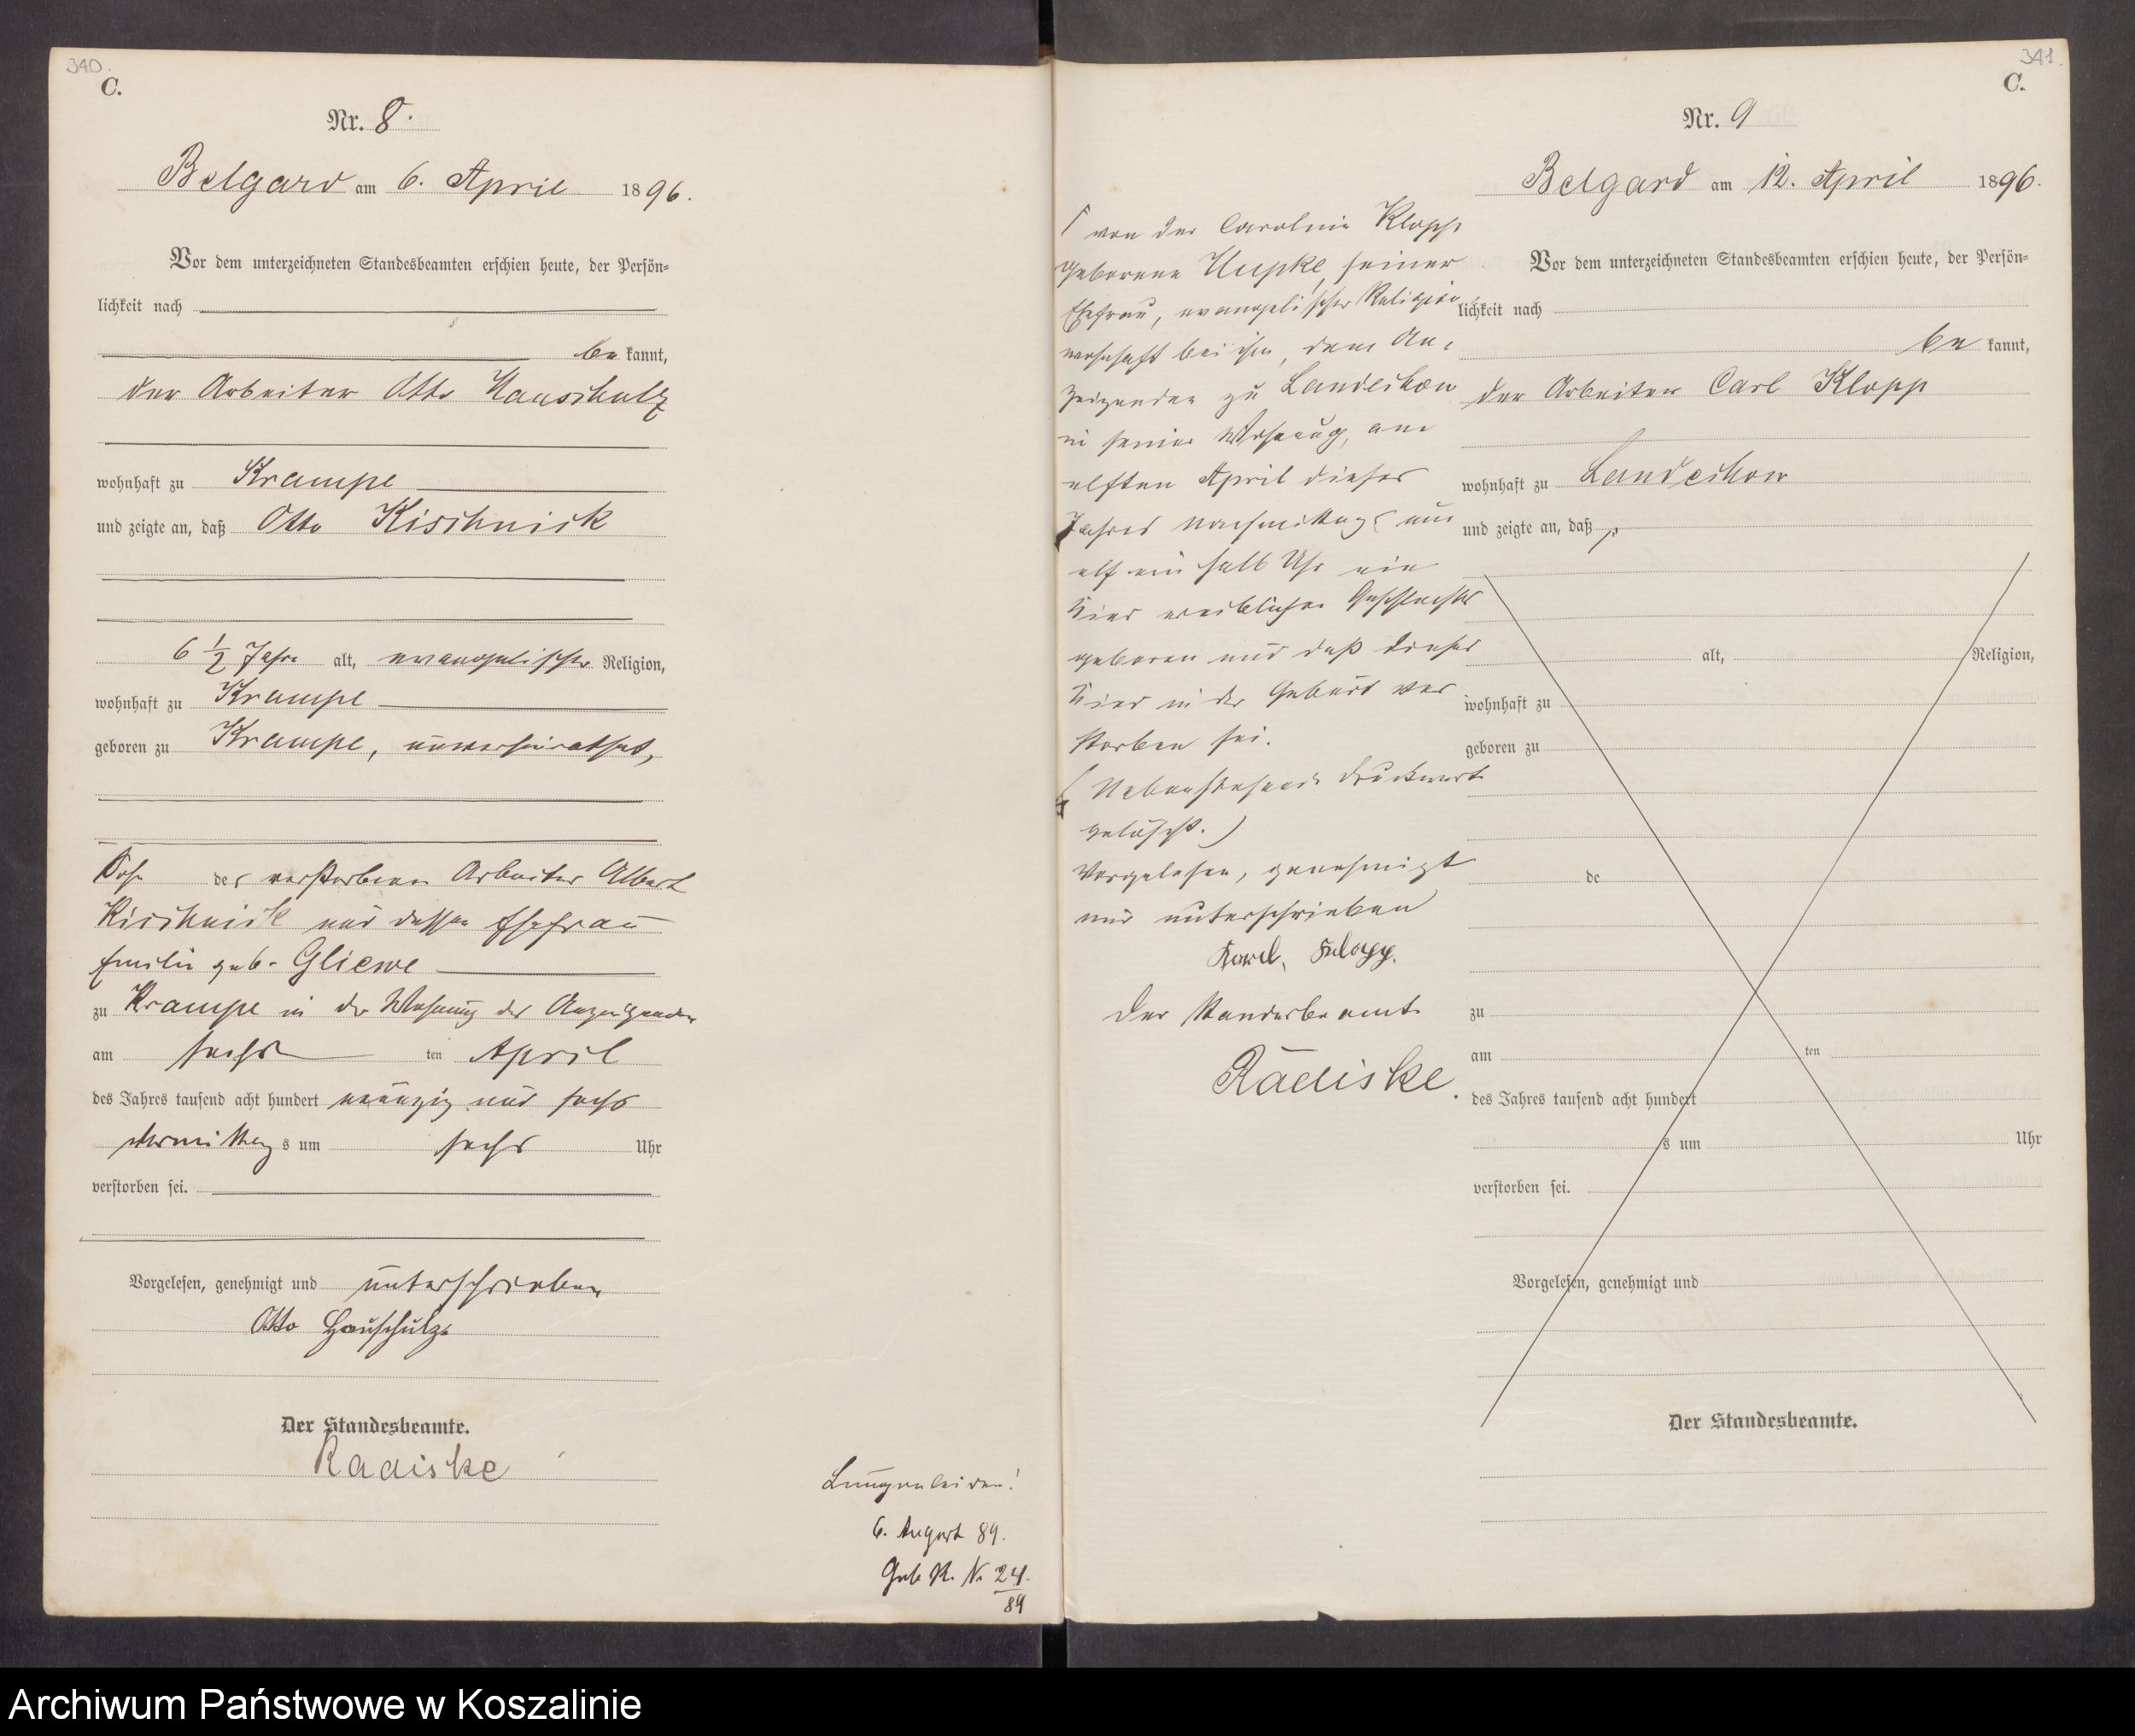 340.
C.
Nr. 8.
Belgard am 6. April 1896.
Vor dem unterzeichneten Standesbeamten erschien heute, der Persön-
lichkeit nach
be kannt,
der Arbeiter Otto Hauschulz
wohnhaft zu Krampe
und zeigte an, daß Otto Kischnick
6 1/2 Jahre alt, evangelischer Religion,
wohnhaft zu Krampe
geboren zu Krampe, unverheirathet,
Sohn des verstorbenen Arbeiter Albert
Kischnick und dessen Ehefrau
Emilie geb. Gliewe
zu Krampe in der Wohnung des Anzeigenden
am sechs ten April
des Jahres tausend acht hundert neunzig und sechs
Vormittag s um sechs Uhr
verstorben sei.
Vorgelesen, genehmigt und unterschrieben
Otto Hauschulz
Der Standesbeamte.
Radiske
Lungenleiden!
6. August 89.
Geb. R. N. 24.
89
341.
C.
Nr. 9
Belgard am 12. April 1896.
Vor dem unterzeichneten Standesbeamten erschien heute, der Persön-
lichkeit nach
be kannt,
der Arbeiter Carl Klopp
wohnhaft zu Landechow
und zeigte an, daß
von der Caroline Klopp
geborene Hupke, seiner
Ehefrau, evangelischer Religion,
wohnhaft bei ihm, dem An-
zeigenden zu Landechow
in seiner Wohnung, am
elften April dieses
Jahres Nachmittags um
elf ein halb Uhr ein
Kind weiblichen Geschlechts
geboren und daß dieses
Kind in der Geburt ver
storben sei.
(Nebenstehende Druckworte
gelöscht.)
Vorgelesen, genehmigt
und unterschrieben
Karl Klopp.
Der Standesbeamte
Radiske.
alt, Religion,
wohnhaft zu
geboren zu
de
zu
am ten
des Jahres tausend acht hundert
s um Uhr
verstorben sei.
Vorgelesen, genehmigt und
Der Standesbeamte.
Archiwum Państwowe w Koszalinie